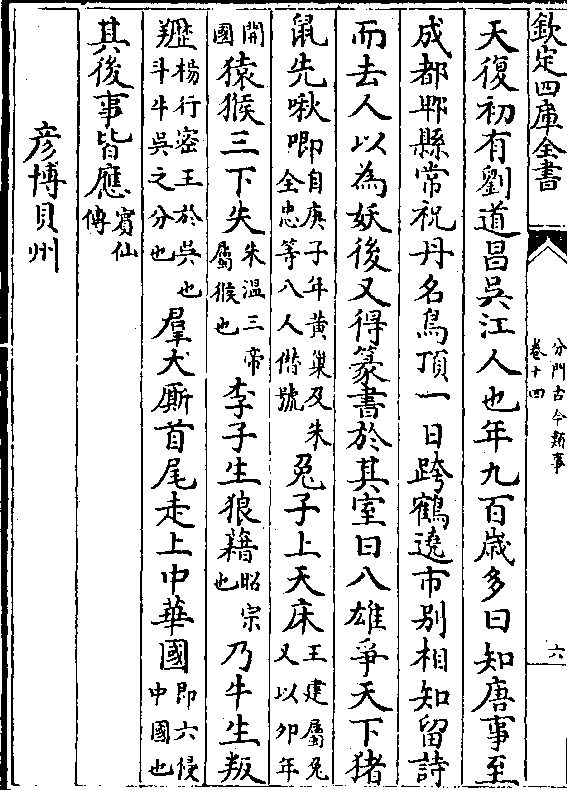 欽定四庫全書
分門古今類事
卷十四
六
天復初有劉道昌吳江人也年九百歲多曰知唐事至
成都郫縣常祝丹名鳥頂一日跨鶴遶市別相知留詩
而去人以為妖後又得篆書於其室曰八雄爭天下猪
鼠先啾唧自庚子年黃巢及朱全忠等八人僣號兔子上天床王建屬兔又以卯年
開國猿猴三下失朱溫三帝屬猴也李子生狼藉昭宗也乃牛生叛
㽁楊行密王於吳也斗牛吳之分也羣犬厮首尾走上中華國即六侵中國也
其後事皆應賓仙傳
彦博貝州